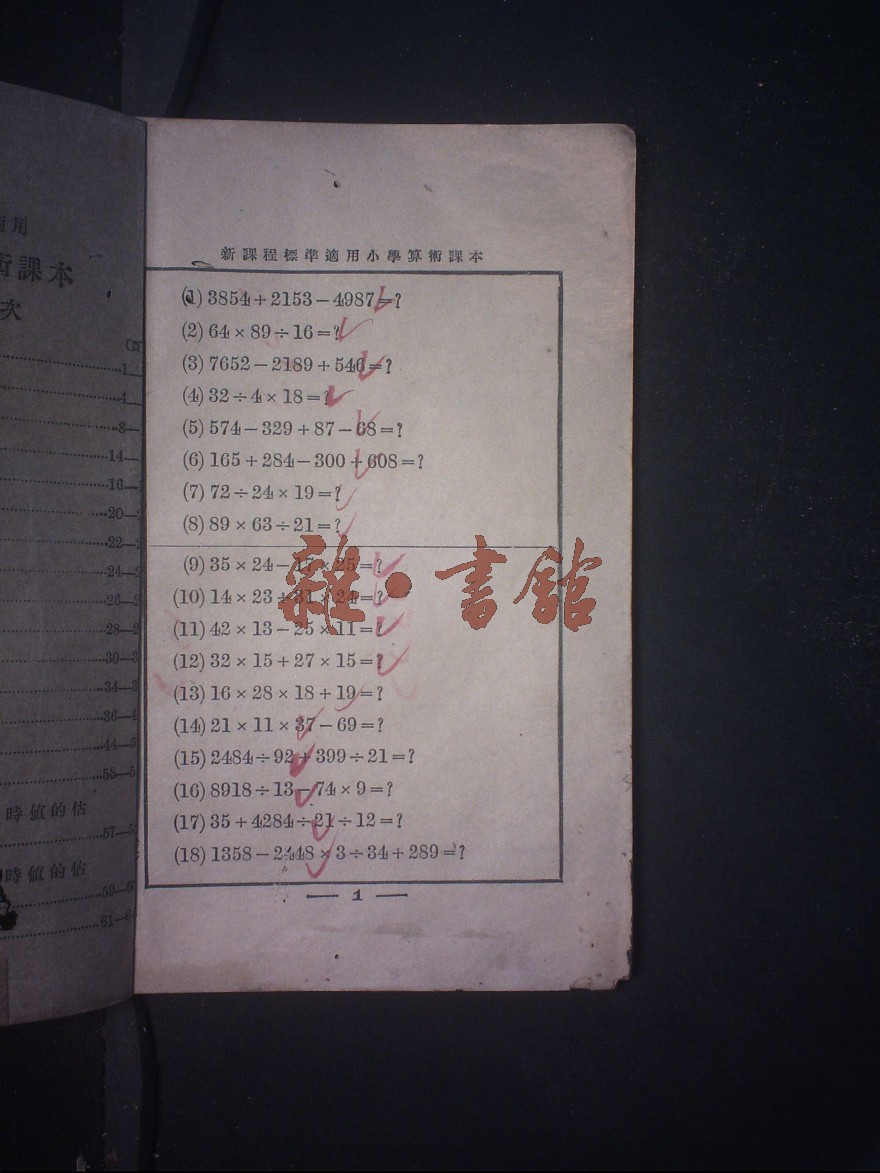 用
術課本
次
1
4
8—
14—
16—
20—
22—
24—
26—
28—
30—3
34—3
36—4
44—5
58—5
時值的估
57—5
時值的估
59—6
61—6
新課程標準適用小學算術課本
(1) 3854+2153−4987=?
(2) 64×89÷16=?
(3) 7652−2189+546=?
(4) 32÷4×18=?
(5) 574−329+87−68=?
(6) 165+284−300+608=?
(7) 72÷24×19=?
(8) 89×63÷21=?
(9) 35×24−17×25=?
(10) 14×23+31×24=?
(11) 42×13−25×11=?
(12) 32×15+27×15=?
(13) 16×28×18+19=?
(14) 21×11×37−69=?
(15) 2484÷92+399÷21=?
(16) 8918÷13−74×9=?
(17) 35+4284÷21÷12=?
(18) 1358−2448×3÷34+289=?
— 1 —
雜·書館